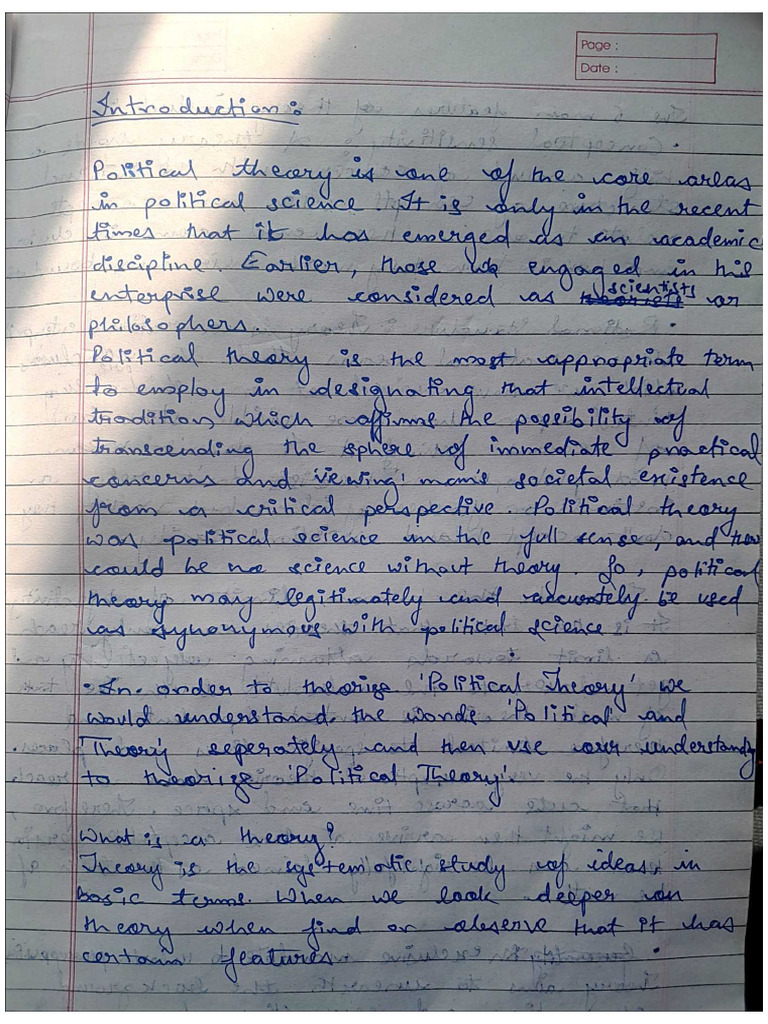 Page :
Date :
Introduction :
Political theory is one of the core areas
in political science. It is only in the recent
times that it has emerged as an academic
discipline. Earlier, those engaged in this
enterprise were considered as scientists or
philosophers.
Political theory is the most appropriate term
to employ in designating that intellectual
tradition which affirms the possibility of
transcending the sphere of immediate practical
concerns and 'viewing' man's societal existence
from a critical perspective. Political theory
was political science in the full sense, and there
could be no science without theory. So, political
theory may legitimately and accurately be used
as synonymous with political science
• In order to theorize 'Political Theory' we
would understand the words 'Political' and
'Theory' seperately and then use our understandg
to theorize 'Political Theory'.
What is a theory?
Theory is the systematic study of ideas, in
basic terms. When we look deeper on
theory when find or observe that it has
certain features